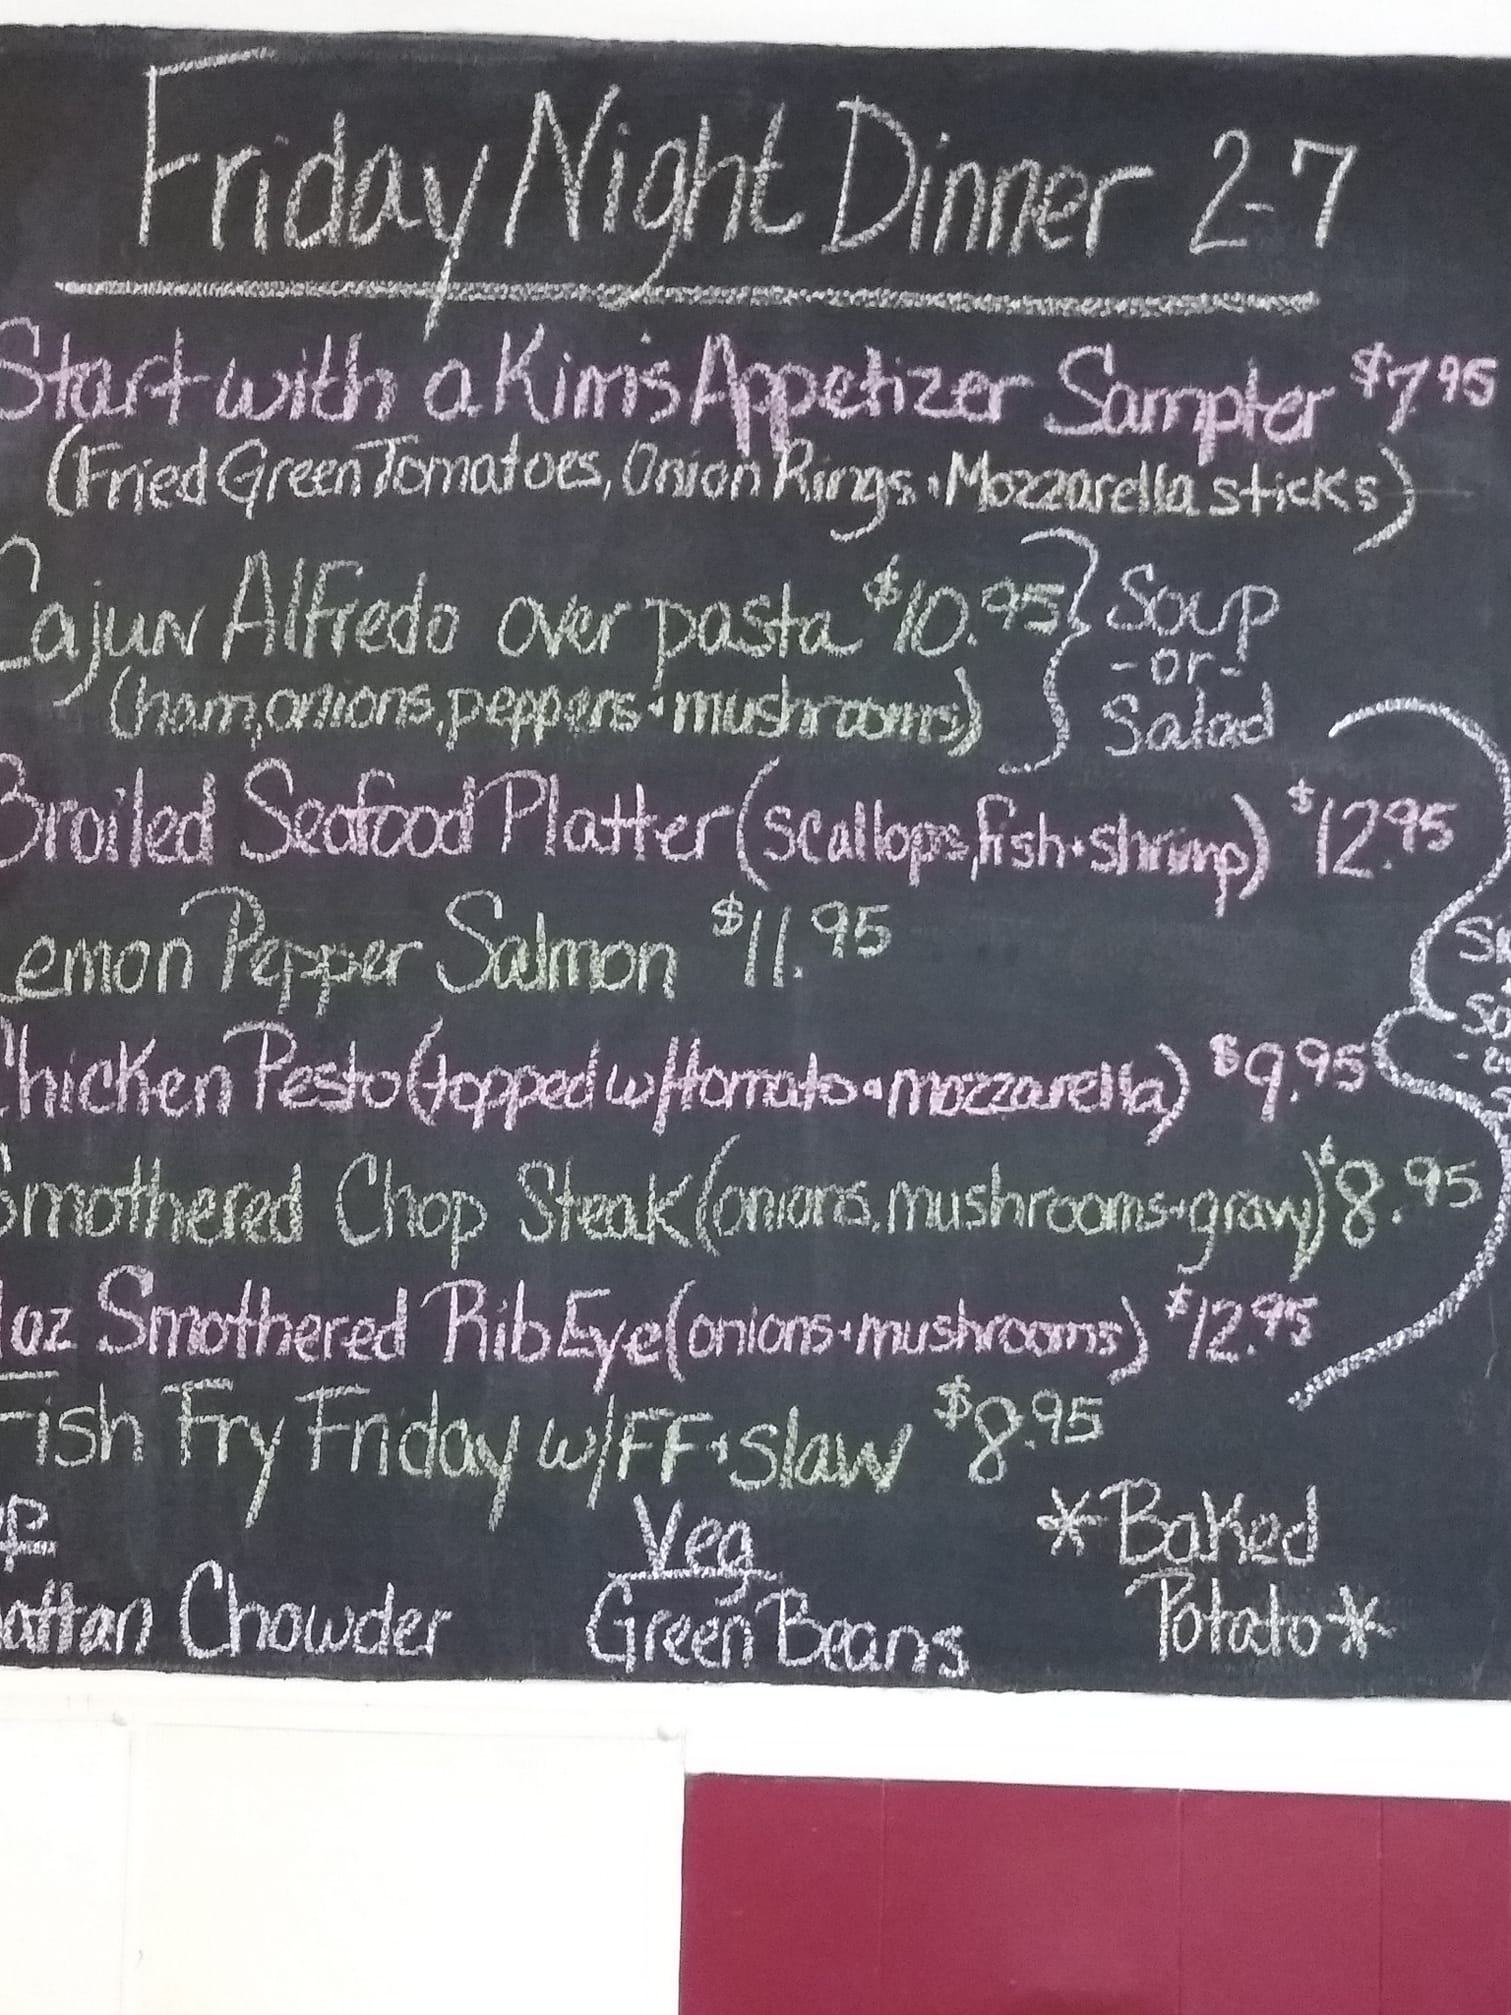 Friday Night Dinner 2-7
Start with a Kim's Appetizer Sampler $7.95
(Fried Green Tomatoes, Onion Rings + Mozzarella sticks)
Cajun Alfredo over pasta $10.95
(ham, onions, peppers + mushrooms)
Soup
-or-
Salad
Broiled Seafood Platter (scallops, fish + shrimp) $12.95
Lemon Pepper Salmon $11.95
Chicken Pesto (topped w/tomato + mozzarella) $9.95
Smothered Chop Steak (onions, mushrooms + gravy) $8.95
oz Smothered RibEye (onions + mushrooms) $12.95
Fish Fry Friday w/FF + Slaw $8.95
Chowder
Veg
Green Beans
*Baked
Potato*